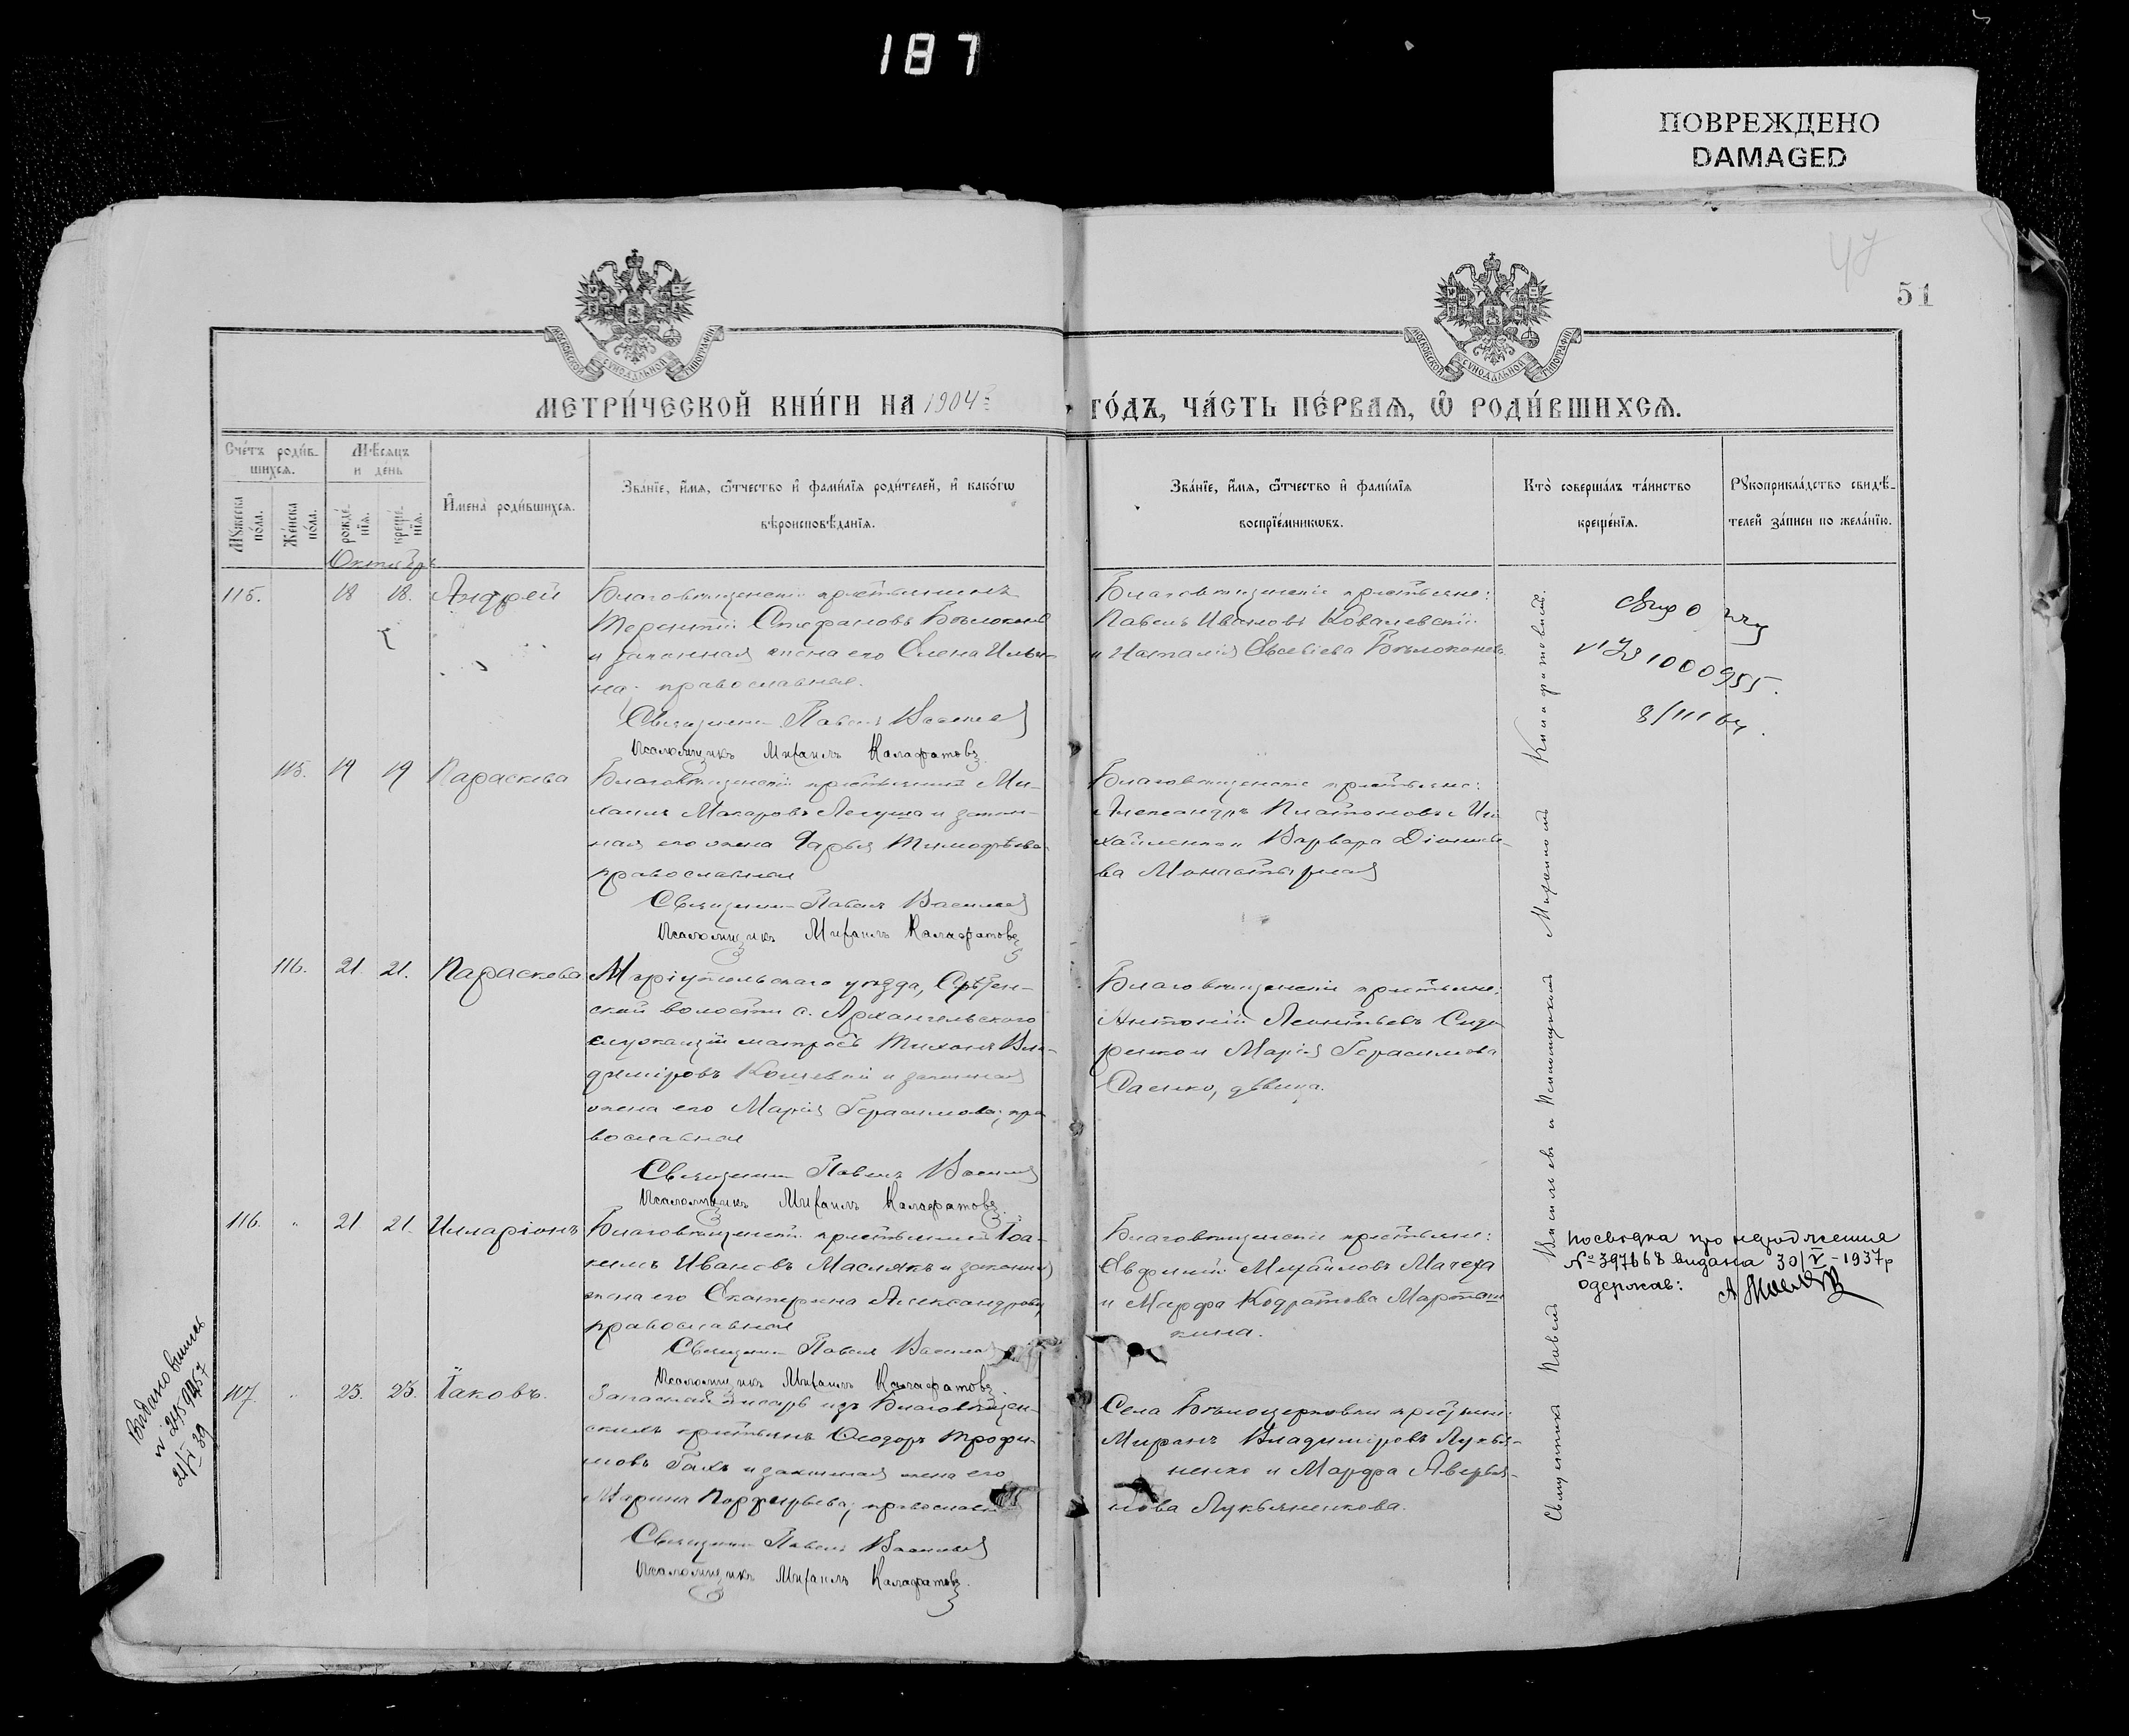 187
ПОВРЕЖДЕНО
DAMAGED
47
51
МОСКОВСКОЙ СУНОДАЛЬНОЙ ТИПОГРАФІИ
МОСКОВСКОЙ СУНОДАЛЬНОЙ ТИПОГРАФІИ
МЕТРИ́ЧЕСКОЙ КНИ́ГИ НА 1904
ГО́ДЪ, ЧА́СТЬ ПЕ́РВАѦ, Ѡ҆ РОДИ́ВШИХСѦ.
Сче́тъ роди́в-
шихсѧ.
Мꙋ́жеска по́ла.
Же́нска по́ла.
Мѣ́сѧцъ
и де́нь
рожде́нїѧ.
креще́нїѧ.
И҆мена̀ роди́вшихсѧ.
Зва́нїе, и҆́мѧ, ѻ҆́тчество и҆ фами́лїѧ роди́телей, и҆ како́гѡ
вѣроисповѣ́данїѧ.
Зва́нїе, и҆́мѧ, ѻ҆́тчество и҆ фами́лїѧ
воспрїе́мникѡвъ.
Кто̀ соверша́лъ та́инство
креще́нїѧ.
Рꙋкоприкла́дство свидѣ́-
телей за́писи по жела́нїю.
Октябрь
115.
18 18.
Андрей
Благовѣщенскій крестьянинъ
Терентій Стефановъ Бѣлоконь
и законная жена его Елена Ильи-
на; православные.
Священникъ Павелъ Васильевъ
Псаломщикъ Михаилъ Калафатовъ
Благовѣщенскіе крестьяне:
Павелъ Ивановъ Ковалевскій
и Наталія Евсевіева Бѣлоконева
1000955.
8/III 64.
115. 19 19
Параскева
Благовѣщенскій крестьянинъ Ми-
хаилъ Макаровъ и закон-
ная его жена Дарья Тимофѣева
православные
Священникъ Павелъ Васильевъ
Псаломщикъ Михаилъ Калафатовъ
Благовѣщенскіе крестьяне:
Александръ Платоновъ
и Варвара
ва Монастырная
116. 21. 21.
Параскева
Маріупольскаго уѣзда, Срѣтен-
ской волости с. Архангельского
служащій матросъ Тихонъ Вла-
диміровъ Кошевой и законная
жена его Марія Герасимова; пра-
вославные
Священникъ Павелъ Васильевъ
Псаломщикъ Михаилъ Калафатовъ.
Благовѣщенскіе крестьяне:
Антоній Леонтьевъ Сидо-
ренко и Марія Герасимова
Саенко, дѣвица.
116. „ 21 21.
Илларіонъ
Благовѣщенскій крестьянинъ Іоа-
кимъ Ивановъ Маслякъ и законная
жена его Екатерина Александрова
православные
Священникъ Павелъ Васильевъ
Псаломщикъ Михаилъ Калафатовъ
Благовѣщенскіе крестьяне:
Евфимій Михайловъ Мачеха
и Марфа Кодратова
кина.
посвідка про народження
№ 397668 видана 30/V-1937р
одержав:
117. „ 23. 23.
Іаковъ.
Запасный писарь изъ Благовѣщен-
скихъ крестьянъ Ѳеодоръ Трофи-
мовъ Галъ и законная жена его
Марина Порфирьева; православные
Священникъ Павелъ Васильевъ
Псаломщикъ Михаилъ Калафатовъ.
Села Бѣлоцерковки крестьяне:
Миронъ Владиміровъ Лукья-
ненко и Марфа Аверья-
нова Лукьяненкова.
Священникъ Павелъ Васильевъ и Псаломщикъ Михаилъ